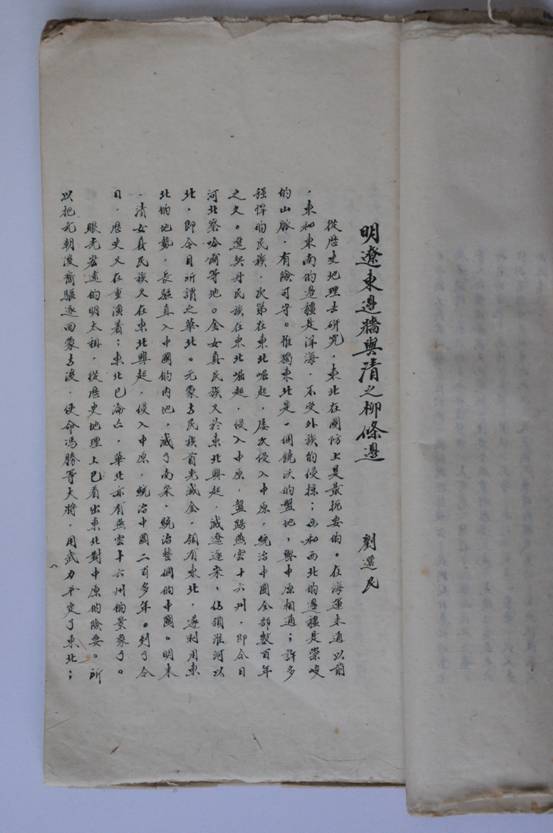 明遼東邊牆與清之柳條邊
劉選民
從歷史地理去研究，東北在國防上是最扼要的。在海運未通以前
，東和東南的邊疆是洋海，不受外族的侵掠；西和西北的邊疆是崇峻
的山脈，有險可守。惟獨東北是一個饒沃的盤地，與中原相通；許多
強悍的民族，次第在東北崛起，屢次侵入中原，統治中國全部數百年
之久。遼契丹民族在東北崛起，侵入中原，盤踞燕雲十六州，即今日
河北察哈爾等地。金女真民族又於東北興起，滅遼逐宋，佔領淮河以
北，即今日所謂之華北。元蒙古民族首先滅金，領有東北，遂利用東
北的地勢，長驅直入中國的內地，滅了南宋，統治整個的中國。明末
，清女真民族又在東北興起，侵入中原，統治中國二百多年。到了今
日，歷史又在重演着；東北已淪亡，華北亦有燕雲十六州的景象了。
眼光宏遠的明太祖，從歷史地理上已看出東北對中原的險要。所
以把元朝後裔驅逐回蒙古後，使命馮勝等大將，用武力平定了東北；